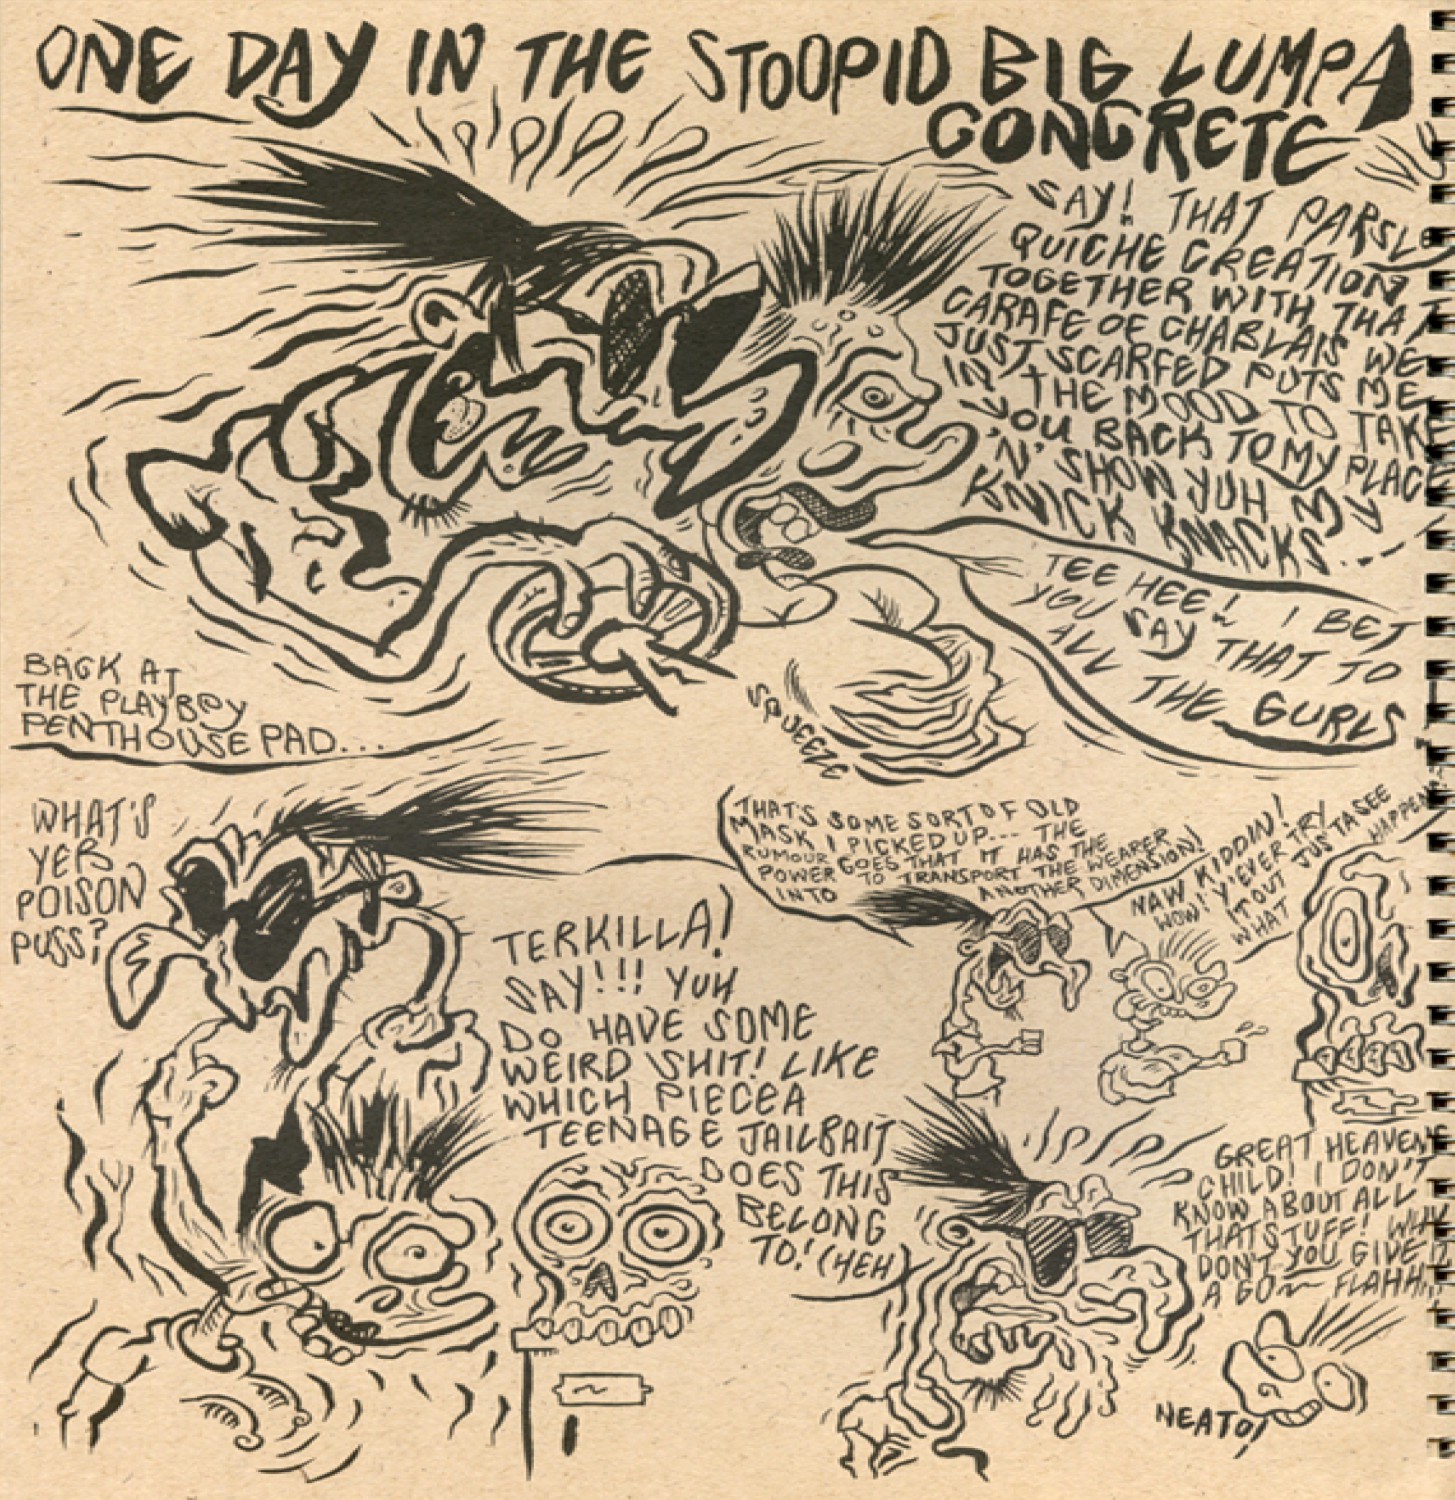 ONE DAY IN THE STOOPID BIG LUMPA
CONCRETE
SAY! THAT PARSLEY
QUICHE CREATION
TOGETHER WITH THAT
CARAFE OF CHABLAIS WE
JUST SCARFED PUTS ME
IN THE MOOD TO TAKE
YOU BACK TO MY PLACE
'N' SHOW YUH MY
KNICK KNACKS...
TEE HEE! I BET
YOU SAY THAT TO
ALL THE GURLS
SQUEEZE
BACK AT
THE PLAYBOY
PENTHOUSE PAD...
WHAT'S
YER
POISON
PUSS?
TERKILLA!
SAY!!! YUH
DO HAVE SOME
WEIRD SHIT! LIKE
WHICH PIECEA
TEENAGE JAILBAIT
DOES THIS
BELONG
TO! (HEH)
THAT'S SOME SORT OF OLD
MASK I PICKED UP... THE
RUMOUR GOES THAT IT HAS THE
POWER TO TRANSPORT THE WEARER
INTO ANOTHER DIMENSION!
NAW KIDDIN!
WOW! Y'EVER TRY
IT OUT JUSTA SEE
WHAT HAPPENS
GREAT HEAVENS
CHILD! I DON'T
KNOW ABOUT ALL
THAT STUFF! WHY
DON'T YOU GIVE IT
A GO~ FLAHH...
NEATO!